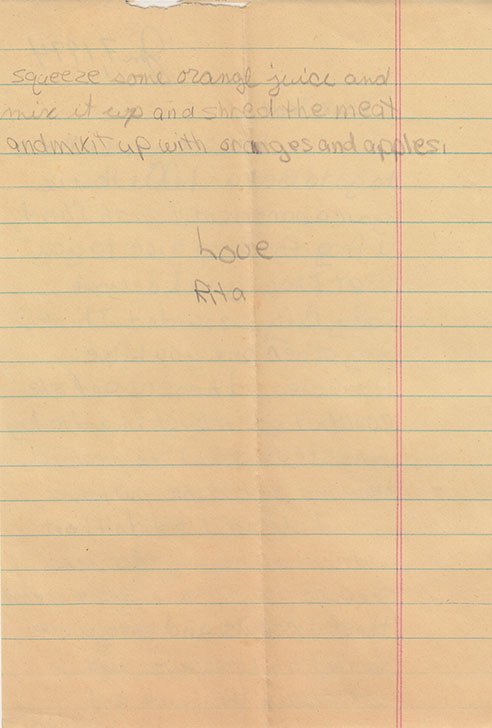 squeeze some orange juice and
mix it up and shred the meat
and mix it up with oranges and apples.
Love
Rita